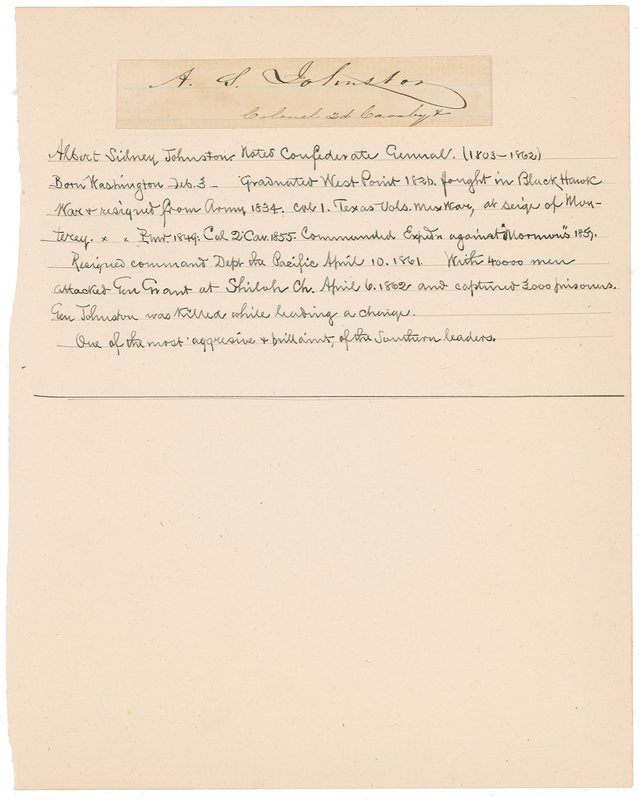 A. S. Johnston
Colonel 2d Cavalry
Albert Sidney Johnston Noted Confederate General. (1803-1862)
Born Washington Feb. 3 - Graduated West Point 1826. fought in Black Hawk
War & resigned from Army 1834. Col 1. Texas Vols. Mex War, at seige of Mon-
terey. x x 1849. Col 2 Cav. 1855. Commanded Expd'n against "Mormons" 1857.
Resigned command Dept the Pacific April 10. 1861. With 40000 men
attacked Gen Grant at Shiloh Ch. April 6. 1862 and captured 3000 prisoners.
Gen Johnston was killed while leading a charge.
One of the most aggresive & brillaint, of the Southern leaders.